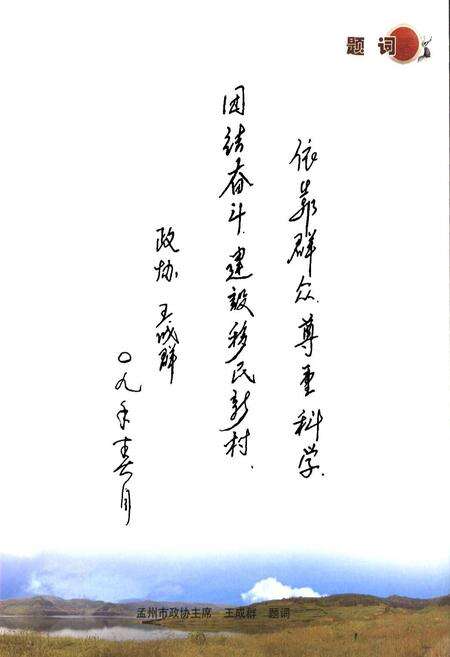 题词
依靠群众.尊重科学.
团结奋斗.建设移民新村.
政协 王成群
〇九年青月
孟州市政协主席 王成群 题词